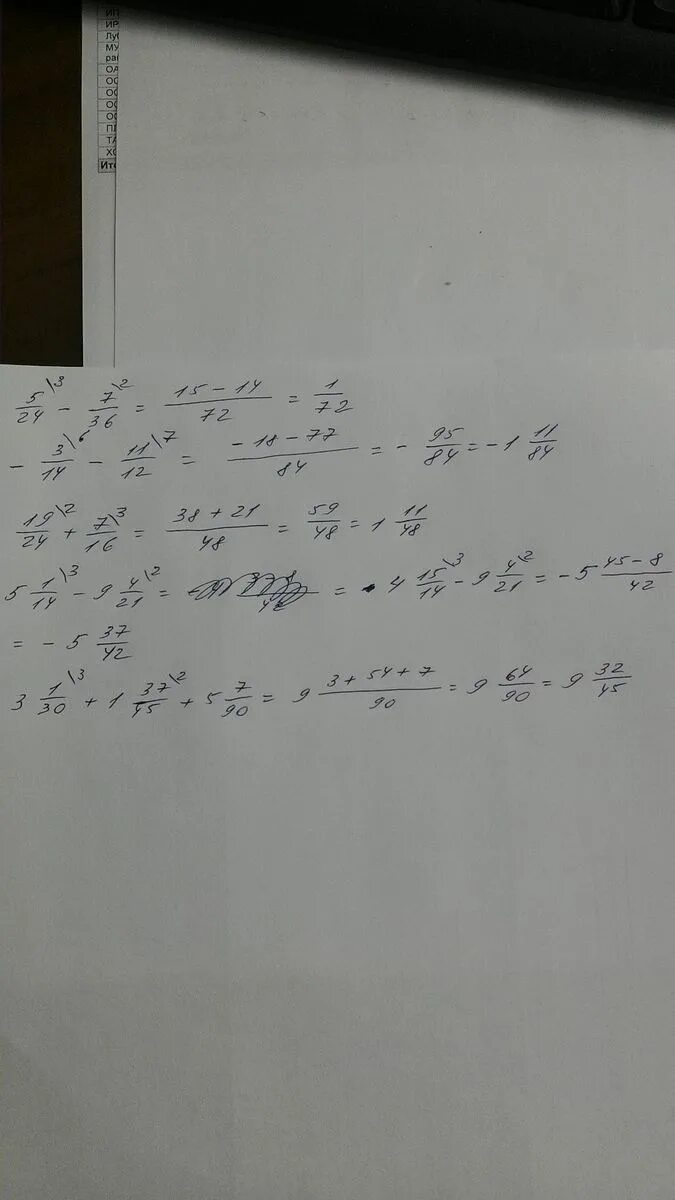 ИР
МУ
ОА
ОС
ОС
ОС
ОС
ТА
ХО
Ито
5/24\3 − 7/36\2 = (15 − 14)/72 = 1/72
− 3/14\6 − 11/12\7 = (−18 − 77)/84 = − 95/84 = −1 11/84
19/24\2 + 7/16\3 = (38 + 21)/48 = 59/48 = 1 11/48
5 1/14\3 − 9 4/21\2 = = 4 15/14\3 − 9 4/21\2 = −5 (45 − 8)/42
= − 5 37/42
3 1/30\3 + 1 37/45\2 + 5 7/90 = 9 (3 + 54 + 7)/90 = 9 64/90 = 9 32/45